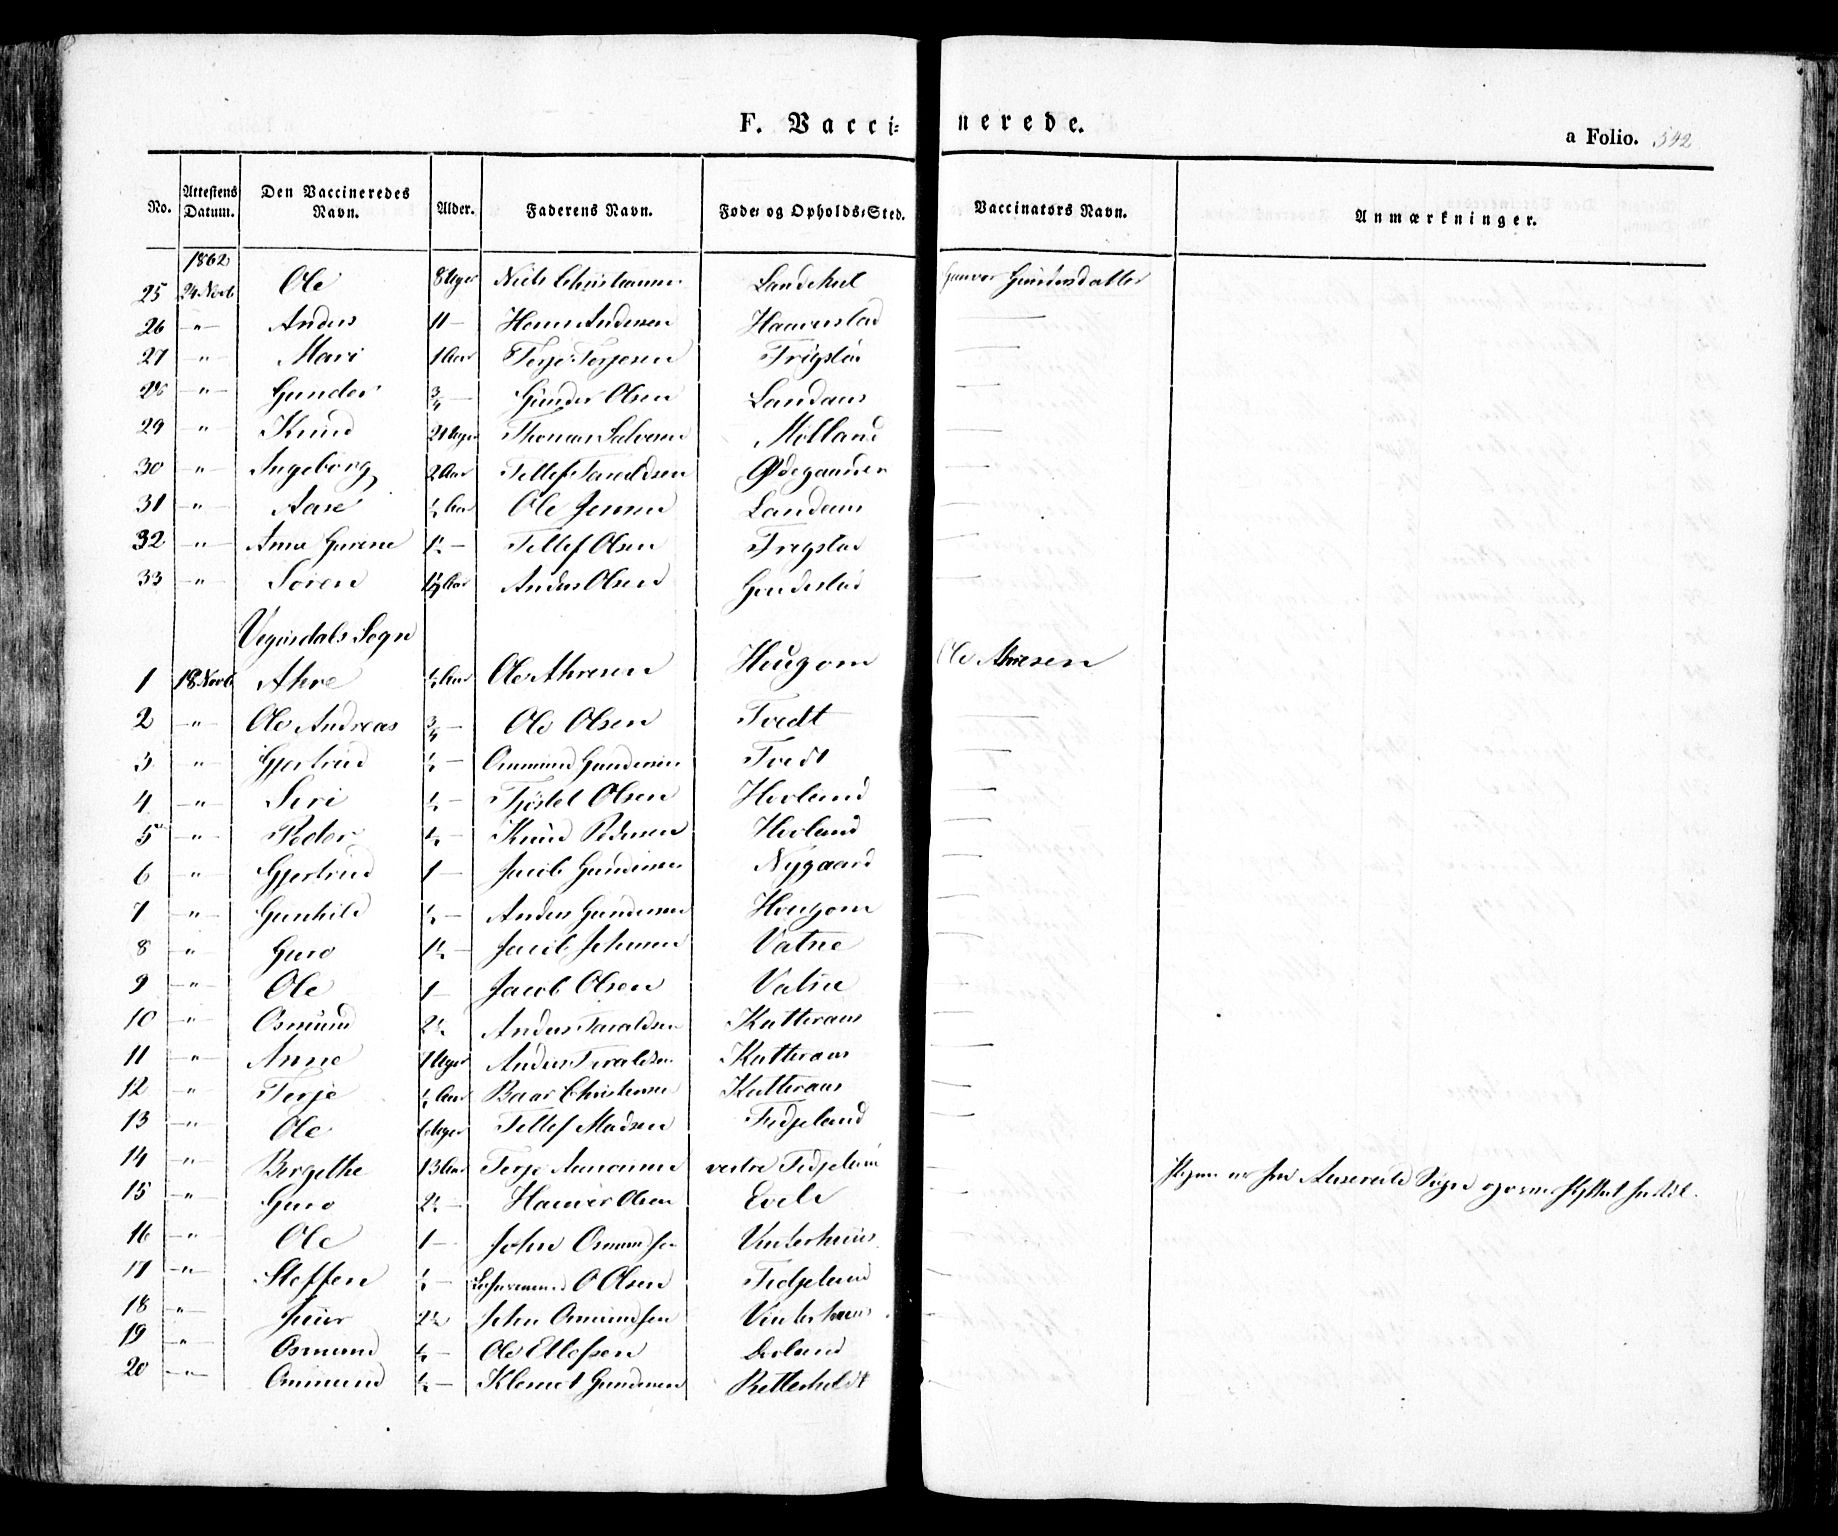 F. Vacci=nerede.
a Folio. 342
No. Attestens Datum. Den Vaccineredes Navn. Alder. Faderens Navn. Føde= og Opholds=Sted. Vaccinators Navn. Anmærkninger.
1862
25 24 Novb Ole 8 Uger Niels Christiansen Gunvor Gundersdatter
26 " Anders 11 — Hans Andersen Haaverstad —
27 " Mari 1 Aar Terje Terjesen Frigstad —
28 " Gunder 3/4 — Gunder Olsen Landaas —
29 " Knud 21 Uger Thomas Salvesen Mølland —
30 " Ingeborg 2 Aar Tellef Taraldsen Ødegaarden —
31 " Aase 1/2 Aar Ole Jensen Landaas —
32 " Anne Gurine 1 1/2 — Tellef Olsen Frigstad —
33 " Søren 1 1/2 Aar Anders Olsen —
Vegusdals Sogn
1 18 Novb Ahre 1/2 Aar Ole Ahresen Heugom Ole Ahresen
2 " Ole Andreas 3/4 — Ole Olsen Tvedt —
3 " Gjertrud 1/2 — Ommund Gundersen Tvedt —
4 " Siri 1/2 — Tjøstel Olsen Hovland —
5 " Peder 1/2 — Knud Pedersen Hovland —
6 " Gjertrud 1 — Jacob Gundersen Nygaard —
7 " Gunhild 1/2 — Anders Gundersen Heugom —
8 " Guro 1 1/2 — Jacob Johnsen Vatne —
9 " Ole 1 — Jacob Olsen Vatne —
10 " Osmund 2 1/2 Anders Taraldsen Katteraas —
11 " Anne Uger Anders Taraldsen Katteraas —
12 " Terje 1/2 Aar Baar Christensen Katteraas —
13 " Ole 6 Uger Tellef Madsen Fidjeland —
14 " Birgithe 13 Aar Terje vestre Fidjeland —
15 " Guro 2 1/2 — Olsen —
16 " Ole 1 — John Osmundsen Vinterhuus —
17 " Steffen 1/2 — O Olsen Fidjeland —
18 " 2 1/2 — John Osmundsen Vinterhuus —
19 " Osmund 1/2 — Ole Ellefsen —
20 " Ommund 1/2 — Klemet Gundersen —
Sogn